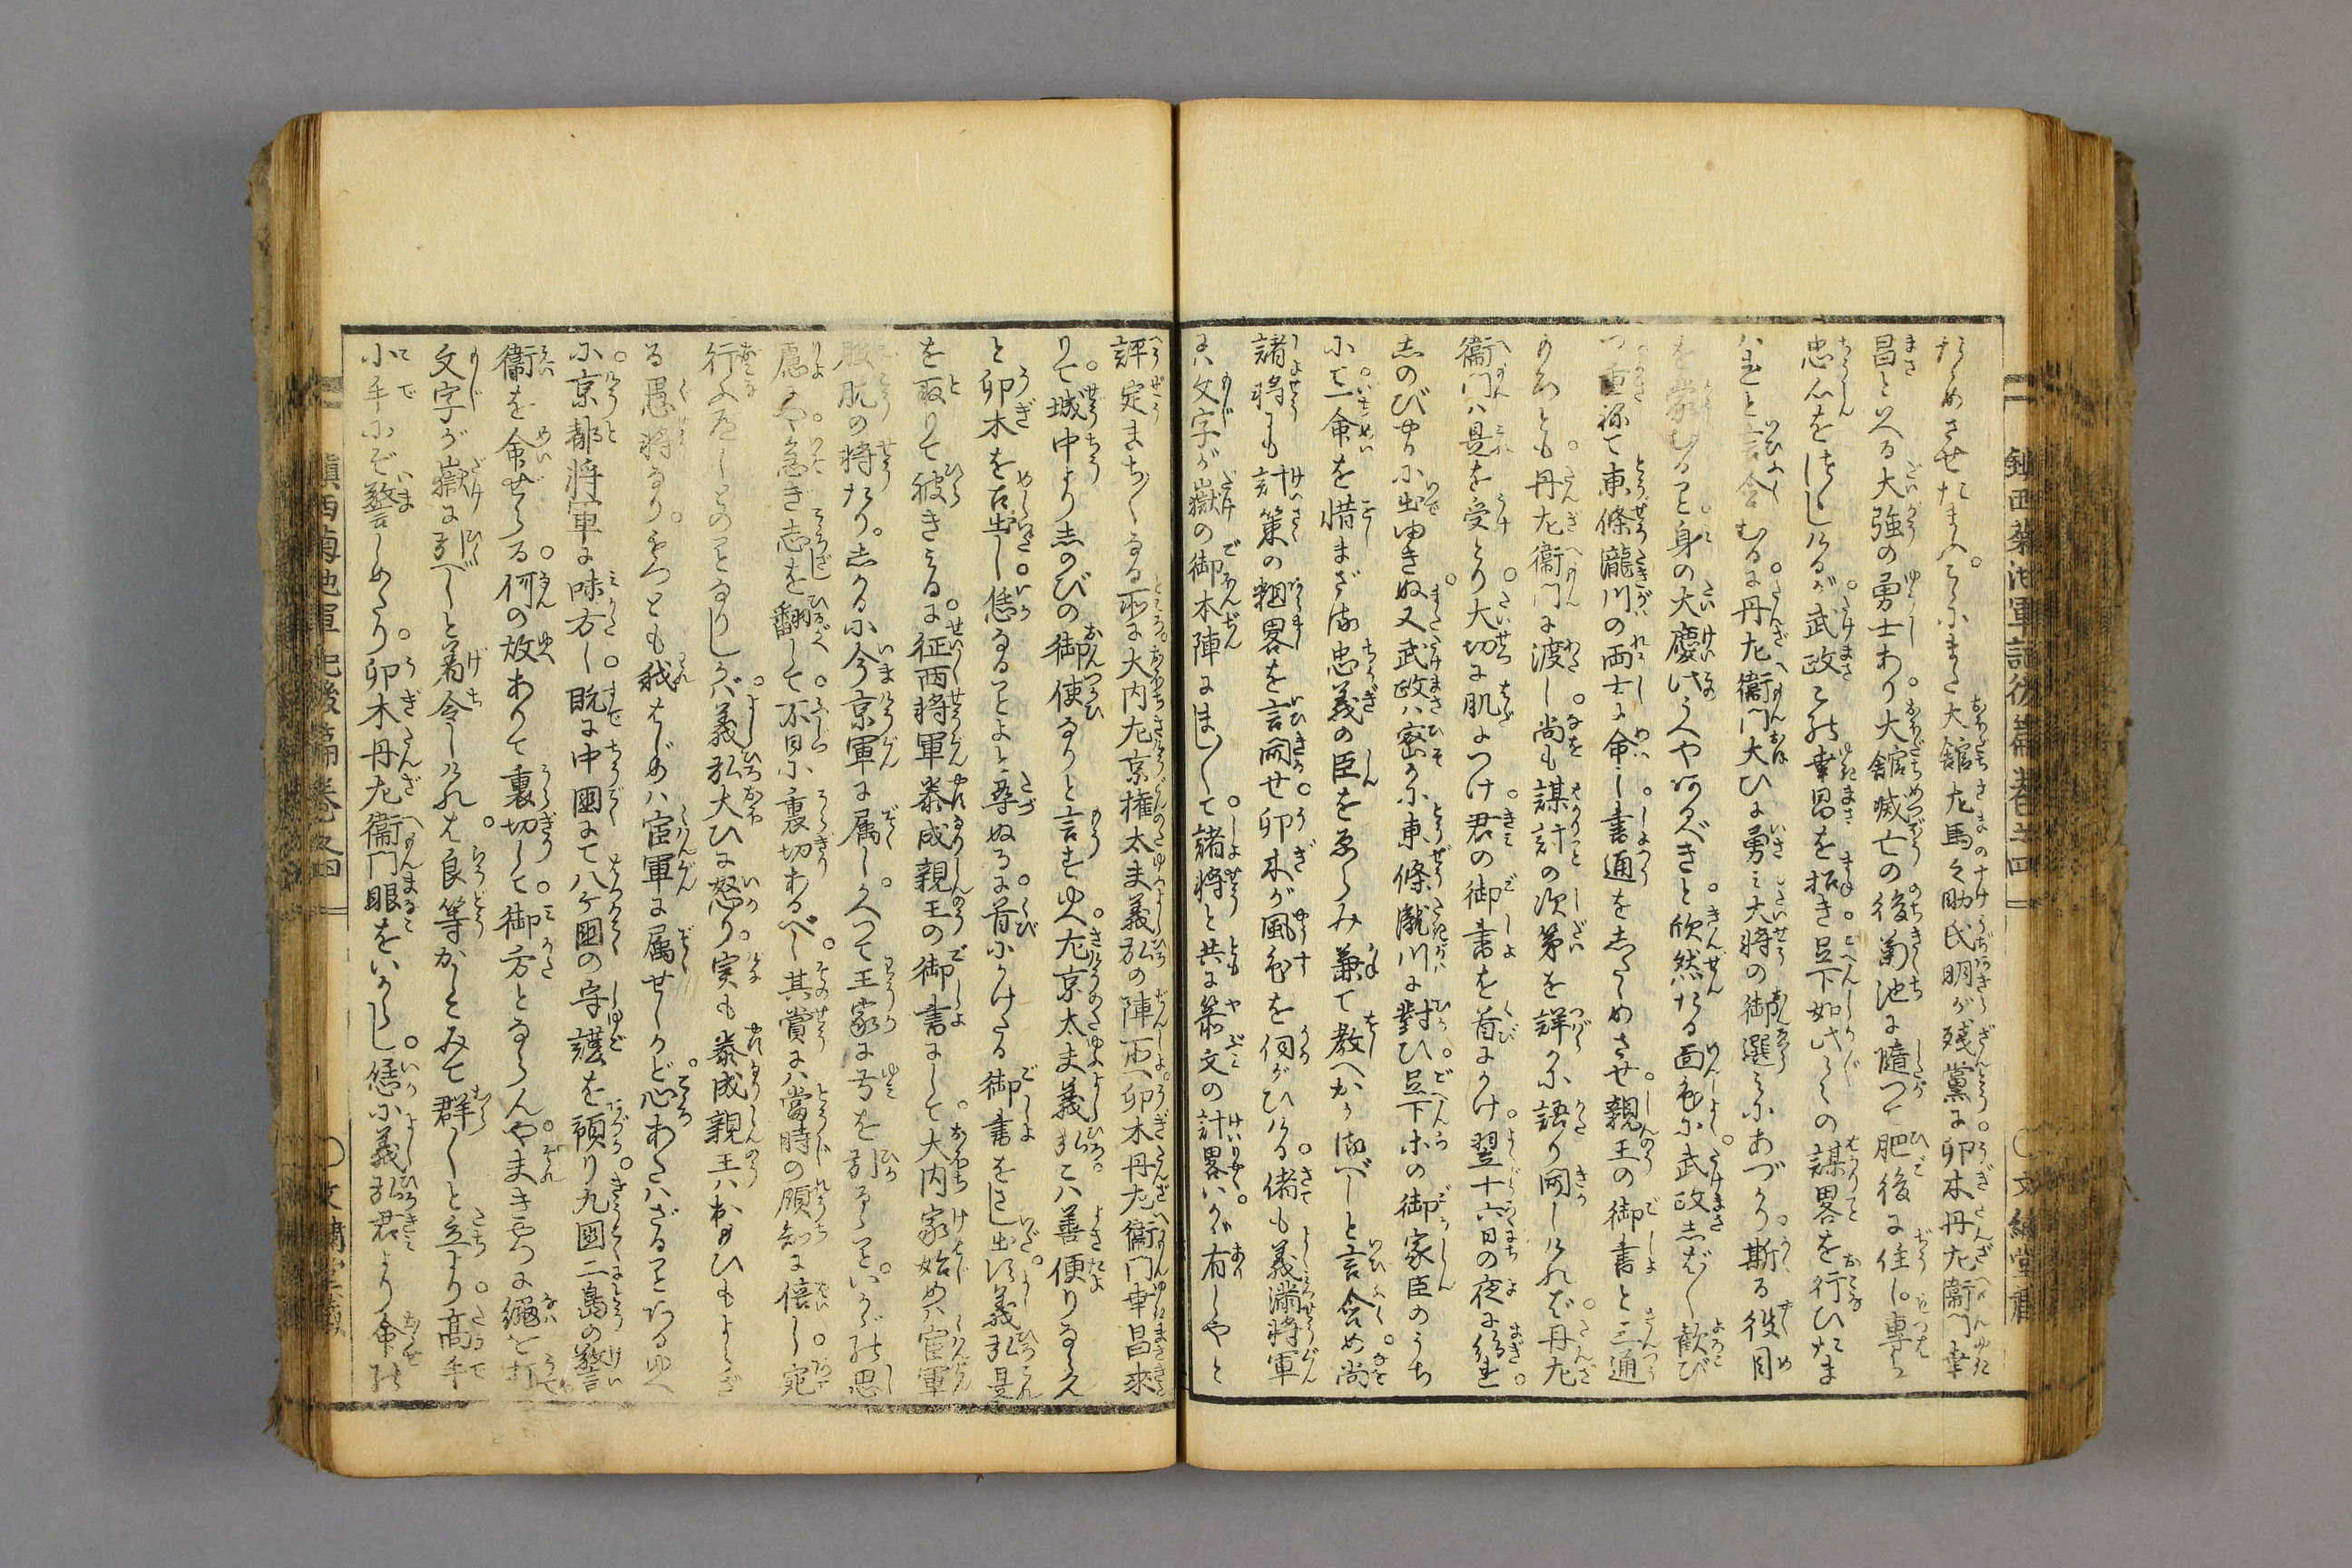 鎮西菊池軍記後篇巻之四
〇文繍堂蔵
ためさせたまふ。こゝにまた大舘左馬之助氏明が残黨に卯木丹左衞門幸
昌といへる大強の勇士あり。大舘滅亡の後菊池に隨つて肥後に住し。專ら
忠心を はしけるが。武政この幸昌を招き足下如此〳〵の謀畧を行ひたま
はれと言含むるに。丹左衞門大ひに勇み大将の御選みにあづかり。斯る役目
を蒙むること。身の大慶此うへやあるべきと欣然たる面色に武政しば〳〵歓び
つ重ねて東條瀧川の両士に命じ書通をしたゝめさせ。親王の御書と三通
のふみとも。丹左衞門に渡し。尚も謀計の次第を詳かに語り聞しければ。丹左
衞門は是を受とり大切に肌につけ。君の御書を首にかけ。翌十六日の夜に紛れ。
しのびやかに出ゆきぬ。又武政は密かに東條瀧川に對ひ。足下等の御家臣のうち
にて。一命を惜まざる忠義の臣をゑらみ兼て教へおかるべしと言含め。尚
諸将にも計策の粗畧を言聞せ。卯木が風色を伺がひける。偖も義満将軍
には文字が嶽の御本陣にまし〳〵て。諸将と共に箭文の計畧いかが有しやと
評定まち〳〵なる所に。大内左京権太夫義弘の陣所へ。卯木丹左衞門幸昌来
りて。城中よりしのびの御使なりと言すゆへ。左京太夫義弘こは善便りなるへ
と卯木を召出し。恁ることよと尋ぬるに。首にかけたる御書をさし出す。義弘是
を取りて披きみるに。征西将軍泰成親王の御書にして。大内家始めは官軍
股肱の将たり。しかるに今京軍に属し。かへつて王家に弓を引ること。いかがの思
慮にや。急ぎ志を翻して。不日に裏切あるべし。其賞には當時の領知に倍し。宛
行ふ可しとのことなりしかば。義弘大ひに怒り。実も泰成親王はおもひもよらざ
る愚将なり。もつとも我はじめは官軍に属せしかど。心あたはざることあるゆへ
に。京都将軍に味方し。既に中國にて八ケ國の守護を預り。九國二島の警
衞を命ぜらる。何の故ありて裏切して。御方とならんや。まきやつに繩を打
文字が嶽に引べしと着令しければ。良等かしこみて群〳〵と立より。高手
小手にぞ警しめたり。卯木丹左衞門眼をいからし。恁に義弘君より命の
鎮西菊池軍記後篇巻之四
〇文繍堂蔵